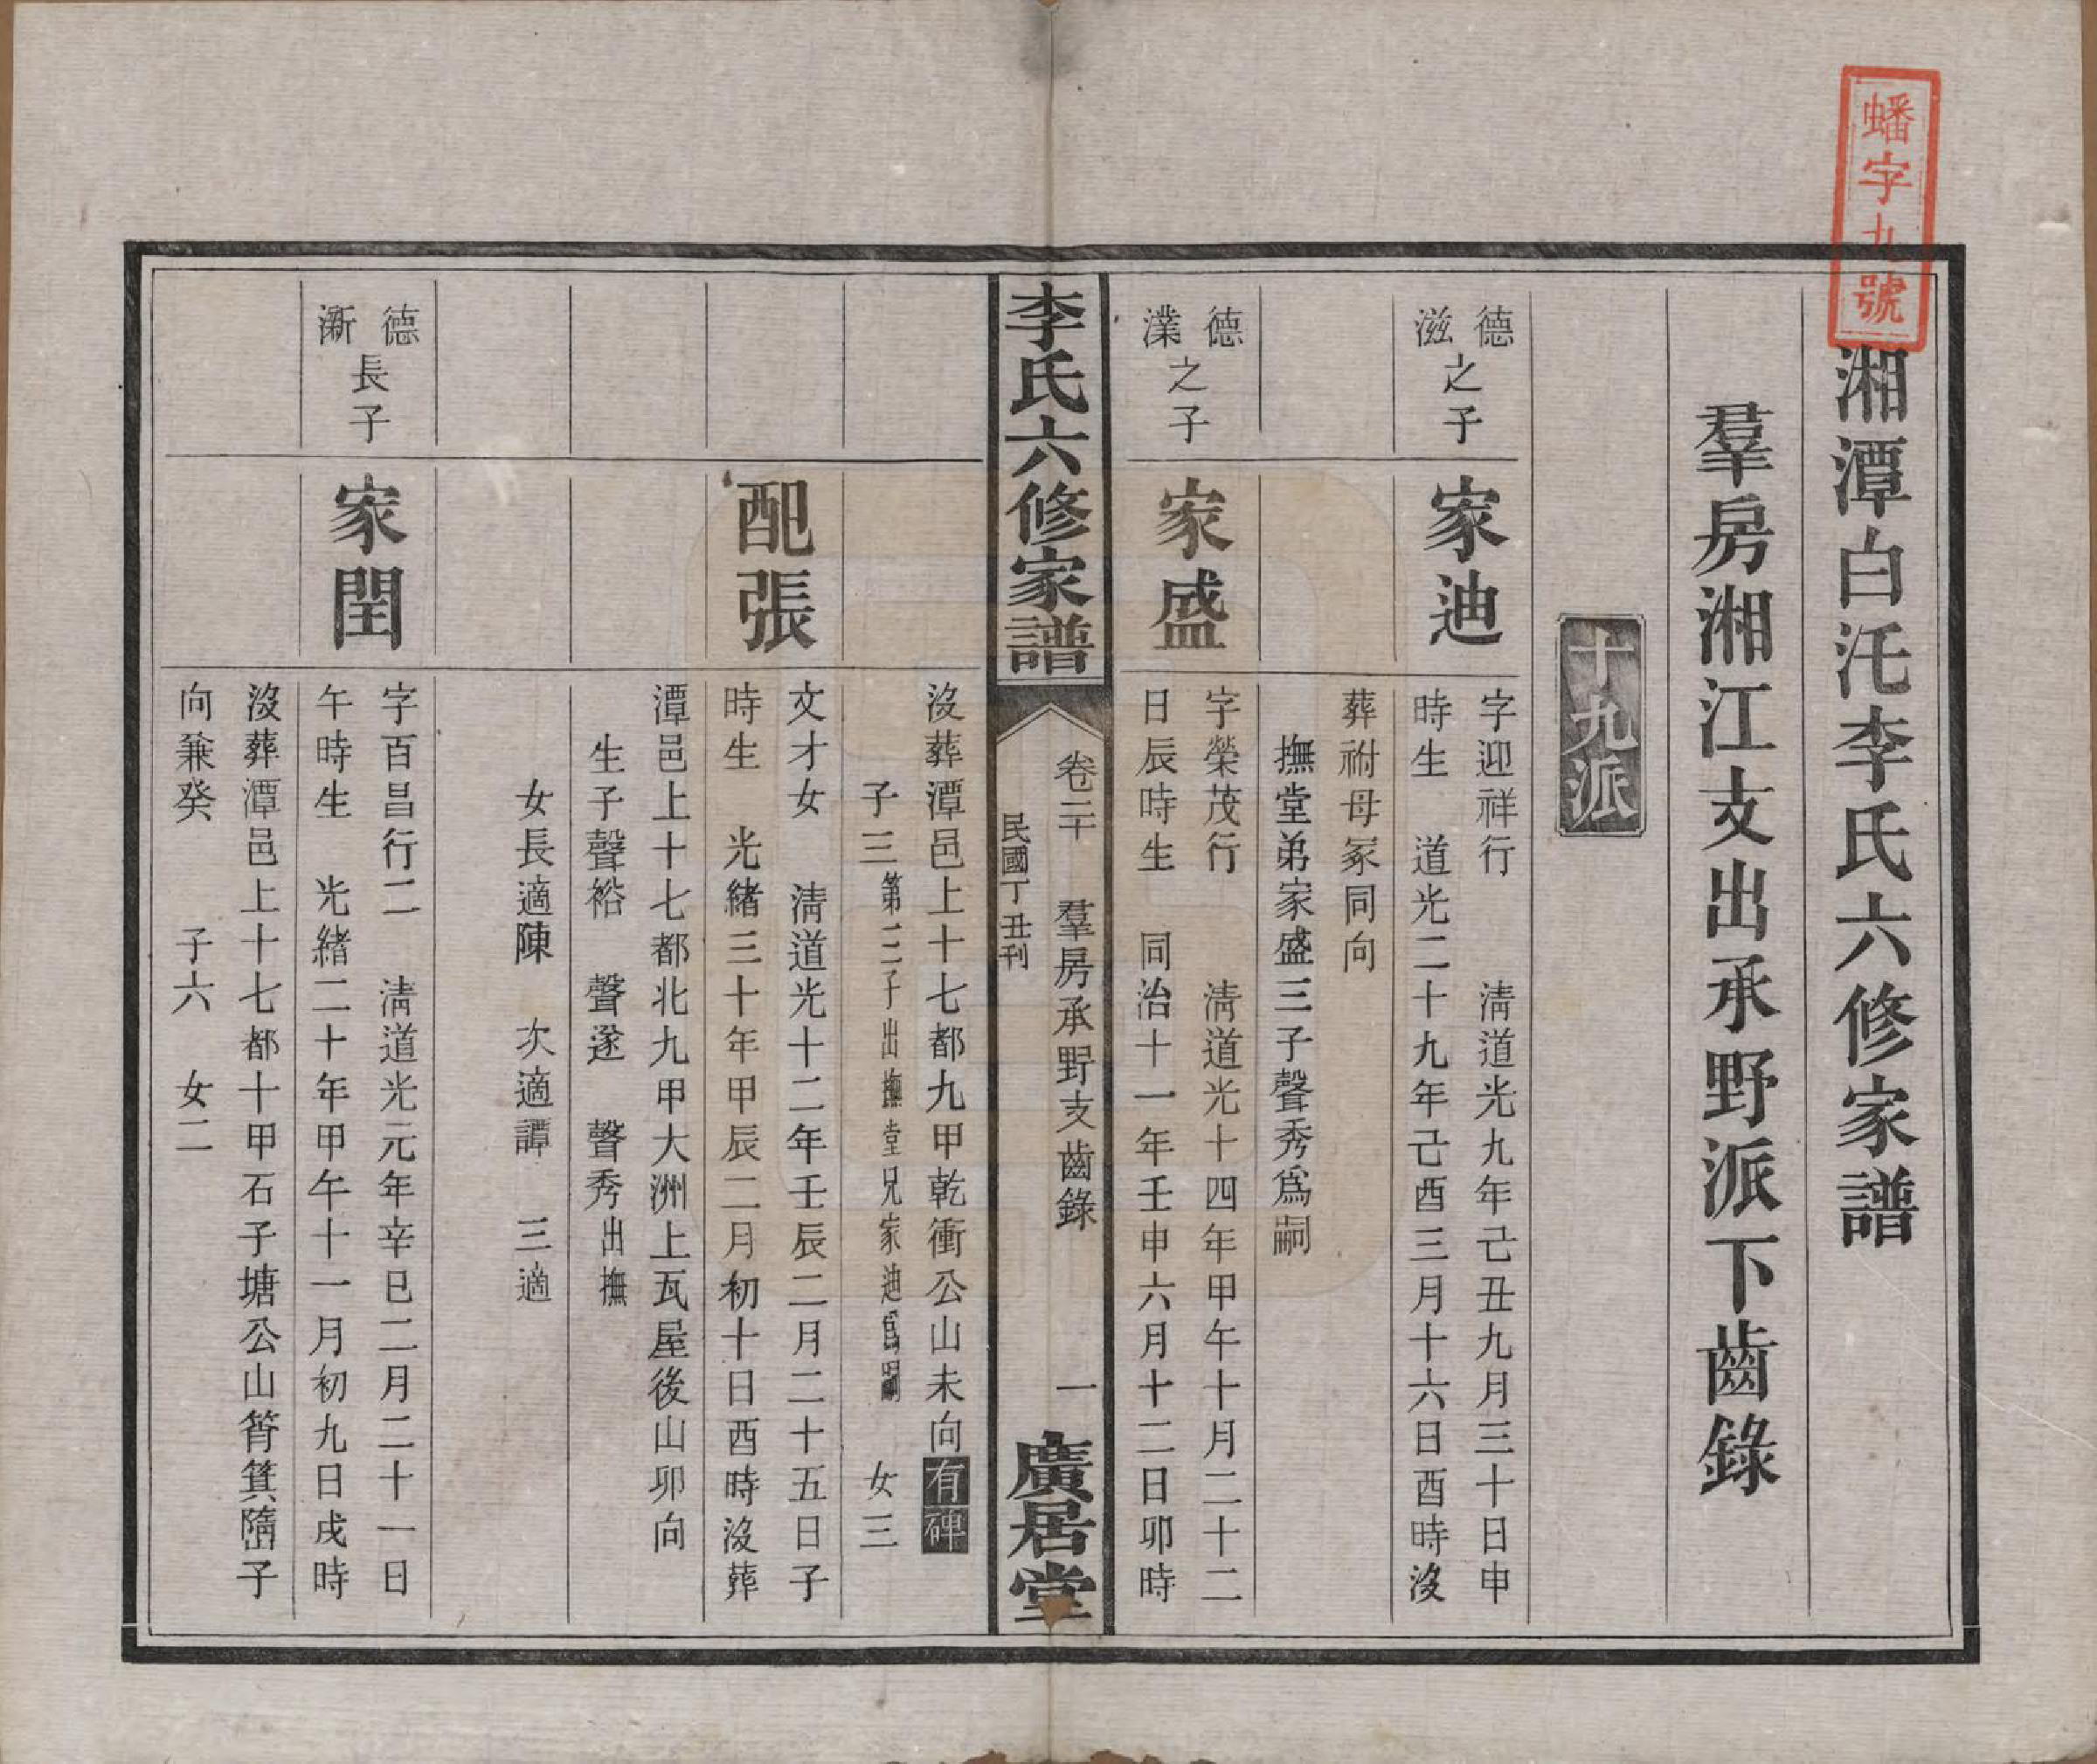 蟠字九號
湘潭白汑李氏六修家譜
羣房湘江支出承野派下齒錄
十九派
德滋之子
家迪
字迎祥行 淸道光九年己丑九月三十日申
時生 道光二十九年己酉三月十六日酉時沒
葬祔母冢同向
撫堂弟家盛三子聲秀爲嗣
德濮之子
家盛
字榮茂行 淸道光十四年甲午十月二十二
日辰時生 同治十一年壬申六月十二日卯時
李氏六修家譜
卷二十 羣房承野支齒錄 一
民國丁丑刊
廣居堂
沒葬潭邑上十七都九甲乾衝公山未向有碑
子三第三子出撫堂兄家迪爲嗣 女三
配張
文才女 淸道光十二年壬辰二月二十五日子
時生 光緒三十年甲辰二月初十日酉時沒葬
潭邑上十七都北九甲大洲上瓦屋後山卯向
生子聲裕 聲遂 聲秀出撫
女長適陳 次適譚 三適
德漸長子
家閏
字百昌行二 淸道光元年辛巳二月二十一日
午時生 光緒二十年甲午十一月初九日戌時
沒葬潭邑上十七都十甲石子塘公山筲箕𡺾子
向兼癸 子六 女二